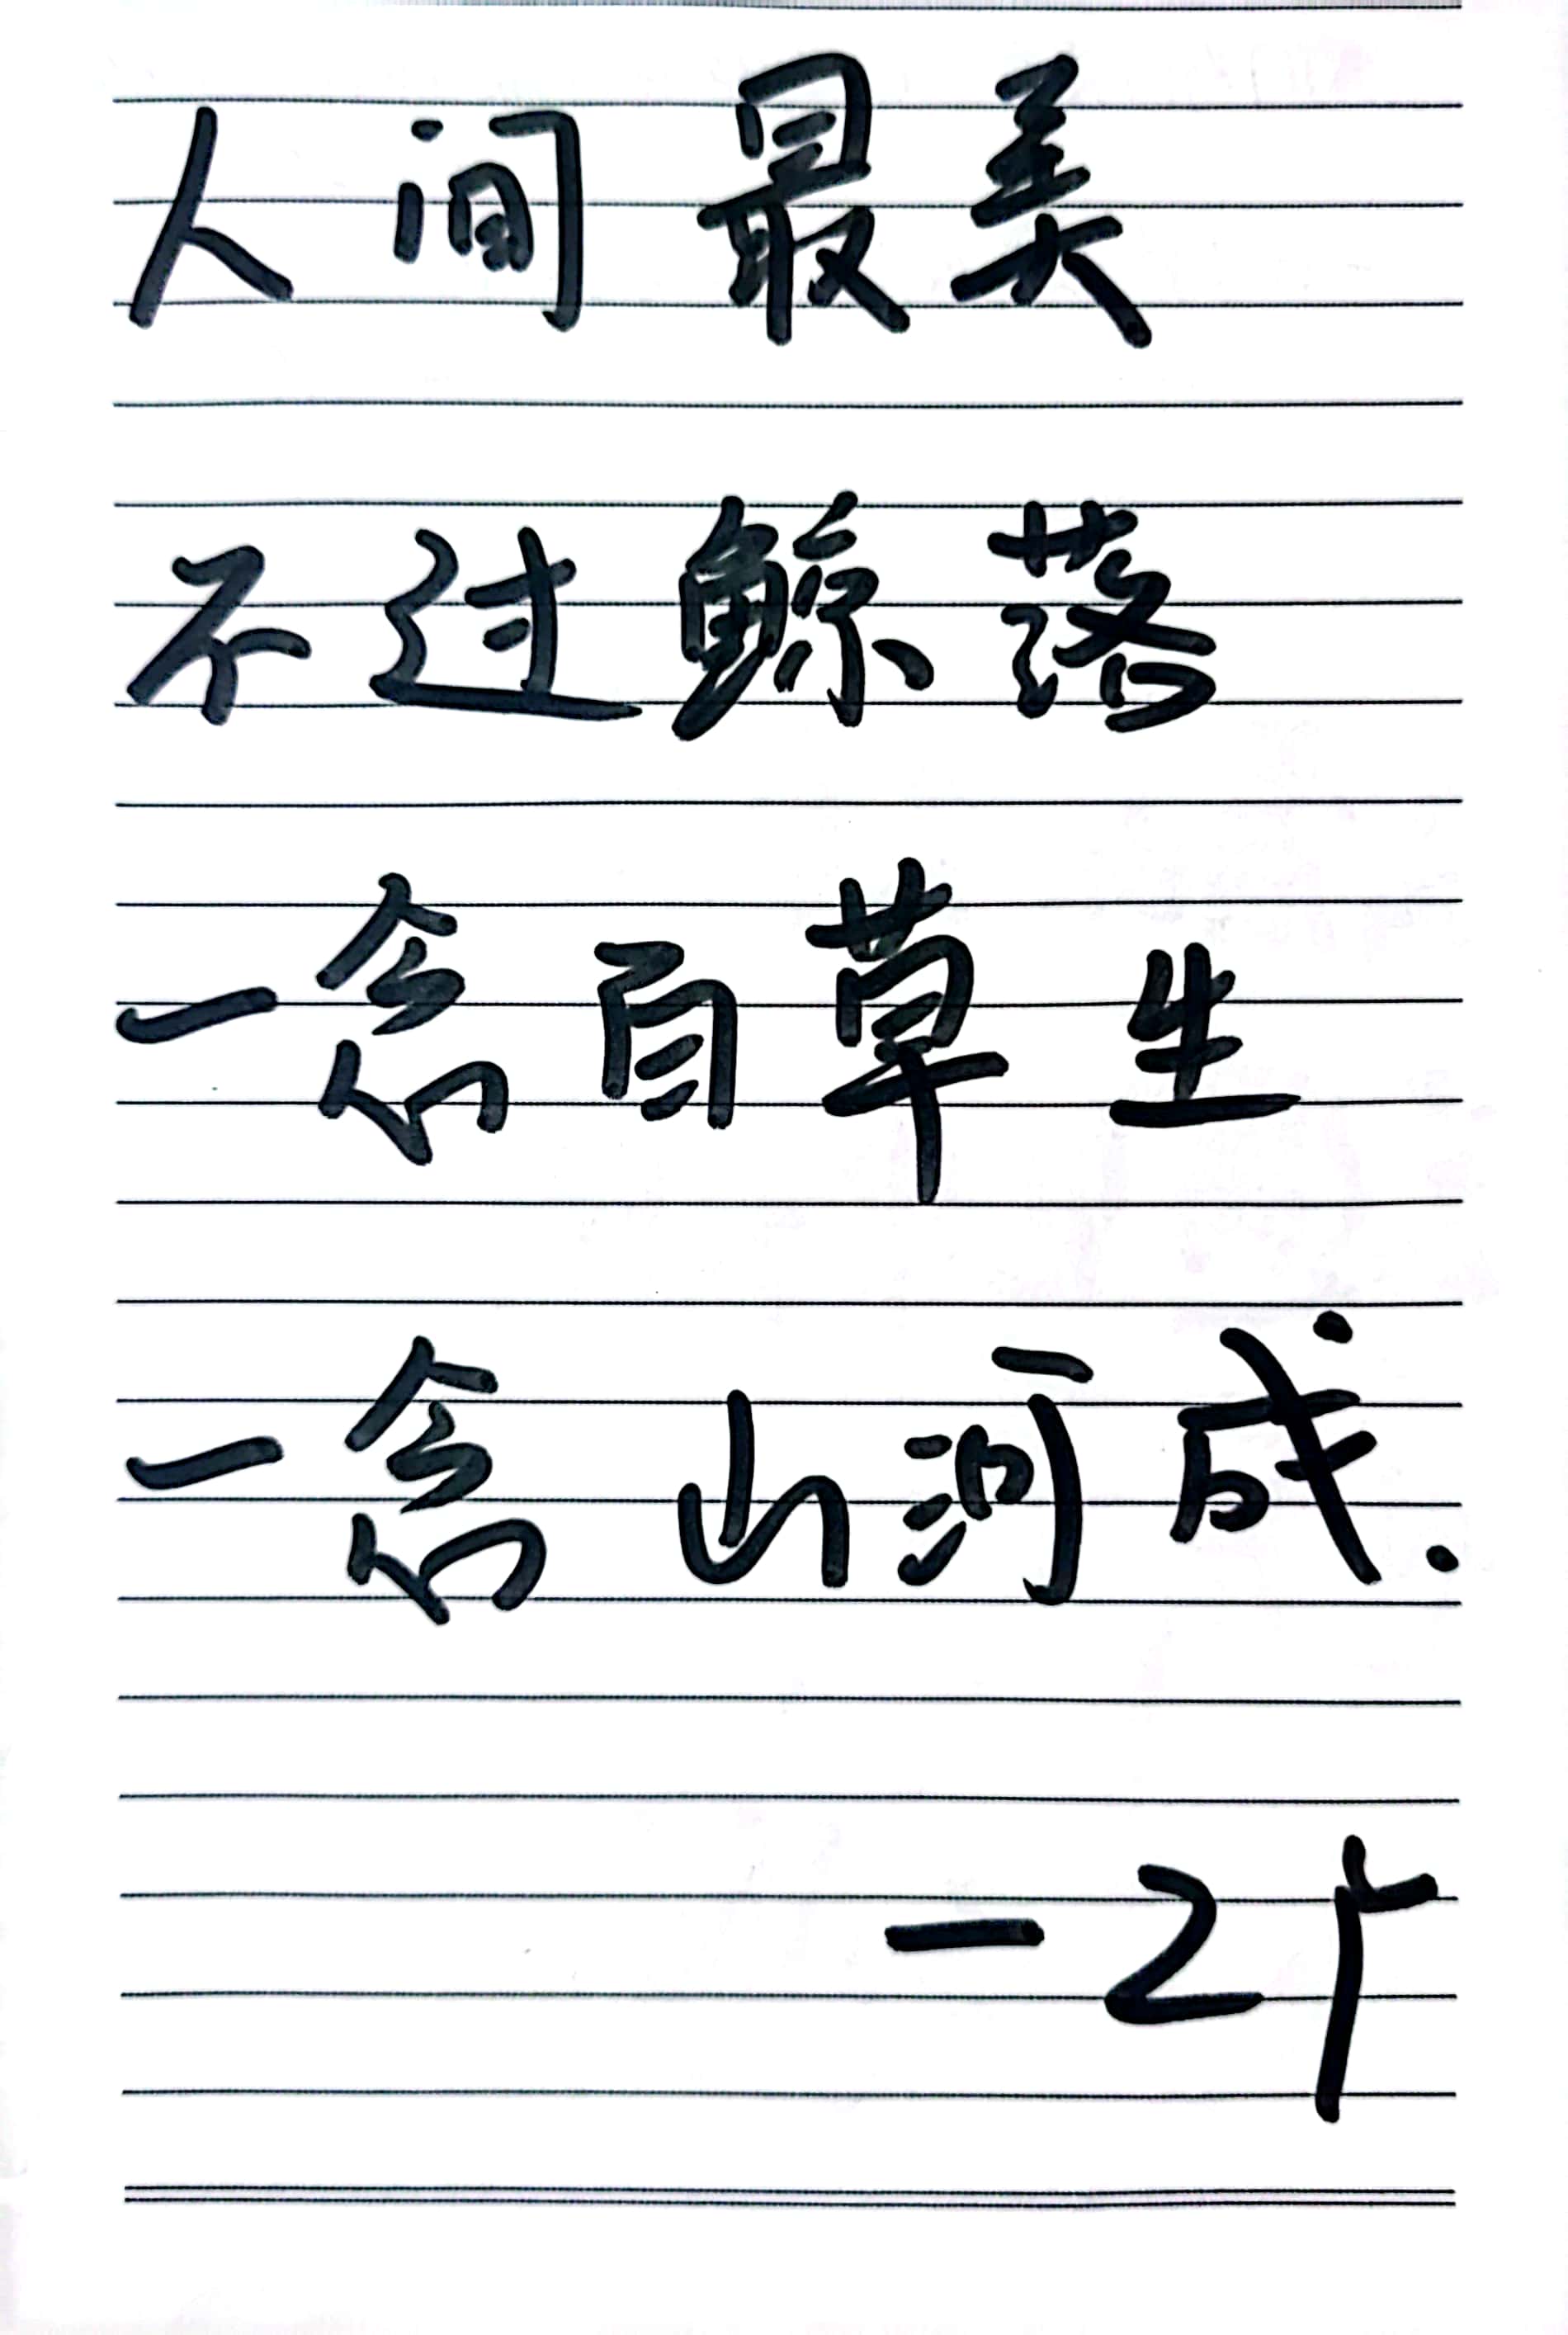 人间最美
不过鲸落
一念百草生
一念山河成.